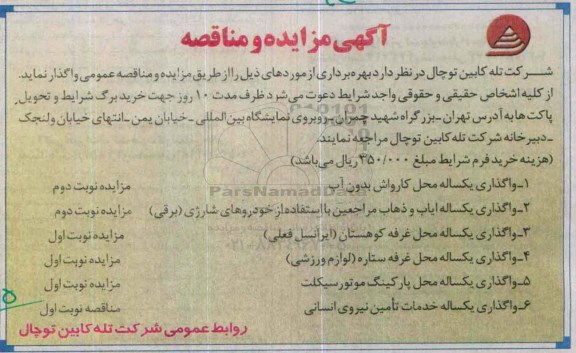 آگهی مزایده و مناقصه
شرکت تله کابین توچال در نظر دارد بهره برداری از موردهای ذیل را از طریق مزایده و مناقصه عمومی واگذار نماید.
از کلیه اشخاص حقیقی و حقوقی واجد شرایط دعوت می شود ظرف مدت ۱۰ روز جهت خرید برگ شرایط و تحویل
پاکت ها به آدرس تهران -بزرگراه شهید چمران -روبروی نمایشگاه بین المللی -خیابان یمن -انتهای خیابان ولنجک
-دبیرخانه شرکت تله کابین توچال مراجعه نمایند.
(هزینه خرید فرم شرایط مبلغ ۳۵۰/۰۰۰ ریال می باشد)
۱-واگذاری یکساله محل کارواش بدون آب مزایده نوبت دوم
۲-واگذاری یکساله ایاب و ذهاب مراجعین با استفاده از خودروهای شارژی (برقی) مزایده نوبت دوم
۳-واگذاری یکساله محل غرفه کوهستان (ایرانسل فعلی) مزایده نوبت اول
۴-واگذاری یکساله محل غرفه ستاره (لوازم ورزشی) مزایده نوبت اول
۵-واگذاری یکساله محل پارکینگ موتورسیکلت مزایده نوبت اول
۶-واگذاری یکساله خدمات تأمین نیروی انسانی مناقصه نوبت اول
روابط عمومی شرکت تله کابین توچال